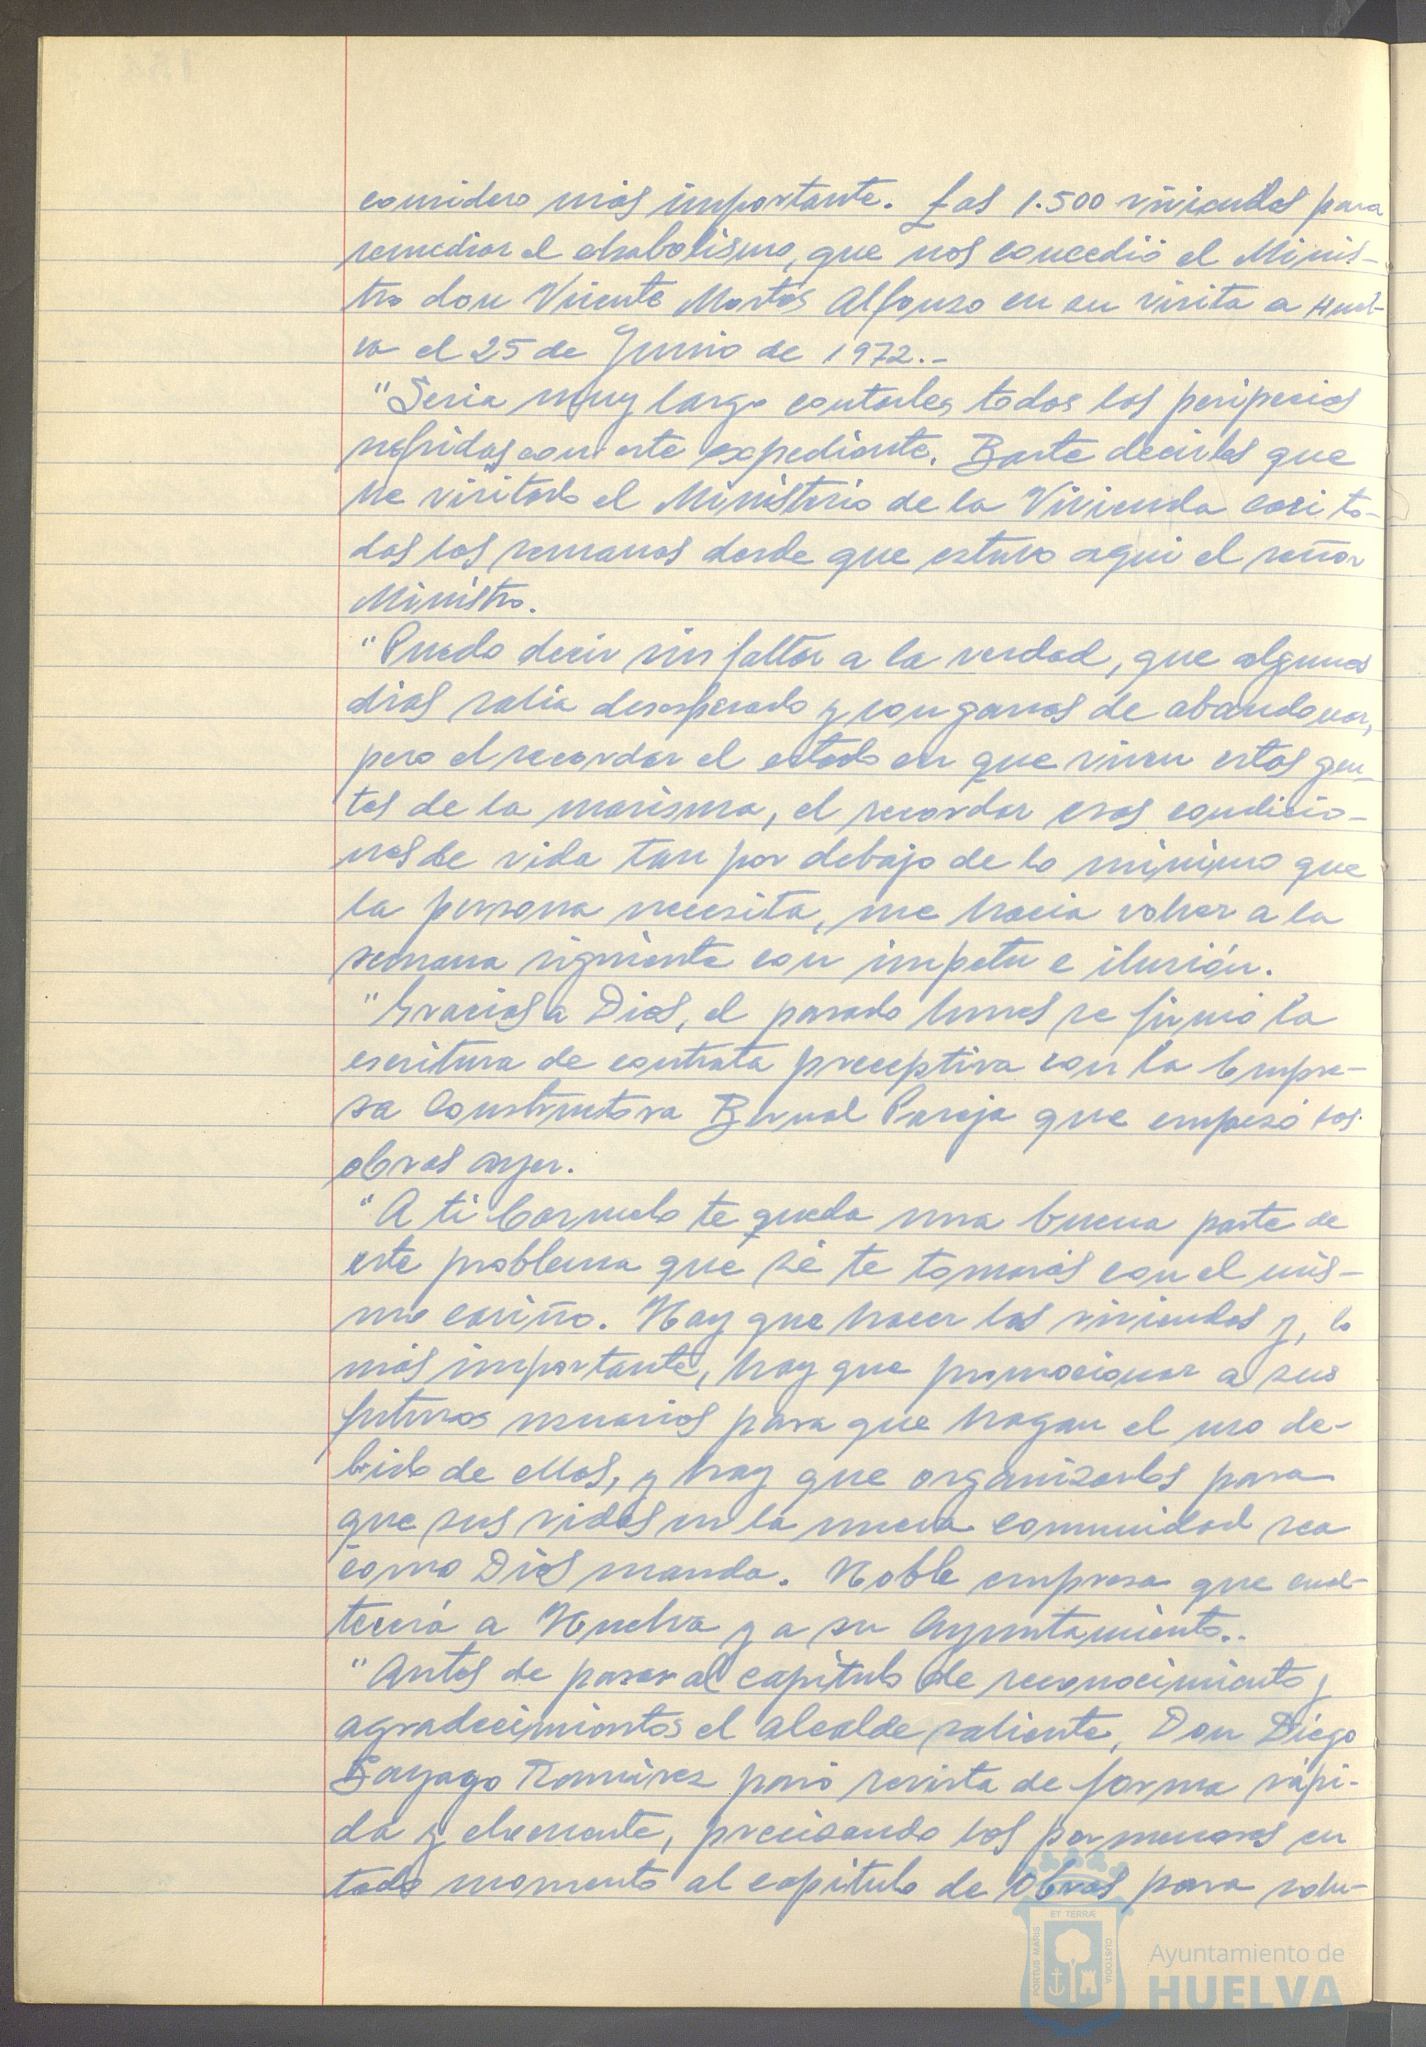 considero más importante. Las 1.500 viviendas para
remediar el chabolismo, que nos concedió el Minis-
tro don Vicente Mortes Alfonso en su visita a Huel-
va el 25 de Junio de 1972.-
"Seria muy largo contarles todas las peripecias
sufridas con este expediente. Baste decirles que
he visitado el Ministerio de la Vivienda casi to-
das las semanas desde que estuvo aqui el señor
Ministro.
"Puedo decir sin faltar a la verdad, que algunos
dias salia desesperado y con ganas de abandonar,
pero el recordar el estado en que viven estas gen-
tes de la marisma, el recordar esas condicio-
nes de vida tan por debajo de lo minimo que
la persona necesita, me hacia volver a la
semana siguiente con impetu e ilusión.
"Gracias a Dios, el pasado lunes se firmó la
escritura de contrata preceptiva con la Empre-
sa Constructora Bernal Pareja que empezó las
obras ayer.
"A ti Carmelo te queda una buena parte de
este problema que sé te tomarás con el mis-
mo cariño. Hay que hacer las viviendas y, lo
más importante, hay que promocionar a sus
futuros usuarios para que hagan el uso de-
bido de ellas, y hay que organizarlos para
que sus vidas en la nueva comunidad sea
como Dios manda. Noble empresa que enal-
tecerá a Huelva y a su Ayuntamiento..
"Antes de pasar al capitulo de reconocimiento y
agradecimientos el alcalde saliente, Don Diego
Sayago Ramirez pasó revista de forma rápi-
da y elocuente, precisando los pormenores en
todo momento al capitulo de Obras para solu-
PORTUS MARIS
ET TERRÆ
CUSTODIA
Ayuntamiento de
HUELVA